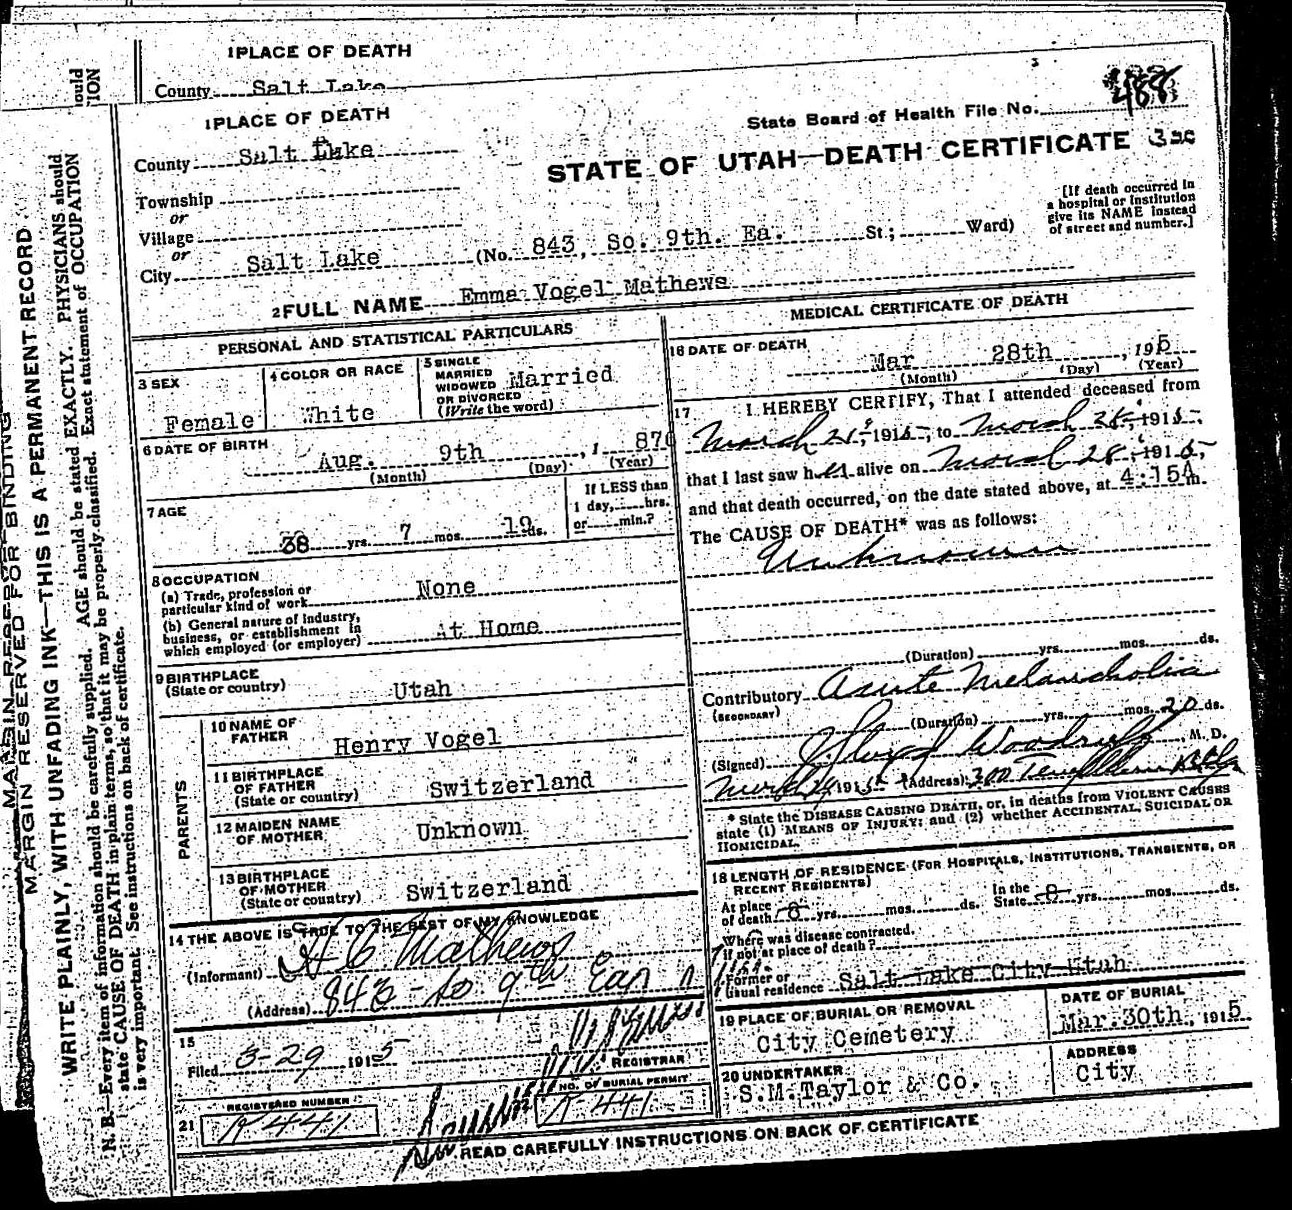 1 PLACE OF DEATH
County Salt Lake
ould
TION
1 PLACE OF DEATH
County Salt Lake
Township
or
Village
or
City Salt Lake (No. 843, So. 9th. Ea. St.; Ward)
State Board of Health File No. 488
STATE OF UTAH—DEATH CERTIFICATE
[If death occurred in
a hospital or institution
give its NAME instead
of street and number.]
2 FULL NAME Emma Vogel Mathews
PERSONAL AND STATISTICAL PARTICULARS
3 SEX
Female
4 COLOR OR RACE
White
5 SINGLE
MARRIED
WIDOWED
OR DIVORCED
(Write the word)
Married
6 DATE OF BIRTH
Aug. 9th , 1 870
(Month) (Day) (Year)
7 AGE
38 yrs. 7 mos. 19 ds.
If LESS than
1 day, hrs.
or min.?
8 OCCUPATION
(a) Trade, profession or
particular kind of work None
(b) General nature of industry,
business, or establishment in
which employed (or employer) At Home
9 BIRTHPLACE
(State or country) Utah
PARENTS
10 NAME OF
FATHER Henry Vogel
11 BIRTHPLACE
OF FATHER
(State or country) Switzerland
12 MAIDEN NAME
OF MOTHER Unknown
13 BIRTHPLACE
OF MOTHER
(State or country) Switzerland
14 THE ABOVE IS TRUE TO THE BEST OF MY KNOWLEDGE
(Informant) H C Mathews
(Address) 843 - So 9th East
15
Filed 3-29 1915
REGISTRAR
REGISTERED NUMBER
21 K 441
NO. OF BURIAL PERMIT
K 441
MEDICAL CERTIFICATE OF DEATH
16 DATE OF DEATH
Mar 28th , 1915
(Month) (Day) (Year)
17 I HEREBY CERTIFY, That I attended deceased from
March 21, 1915, to March 28, 1915,
that I last saw her alive on March 28, 1915,
and that death occurred, on the date stated above, at 4:15A m.
The CAUSE OF DEATH* was as follows:
Unknown
(Duration) yrs. mos. ds.
Contributory Acute Melancholia
(SECONDARY)
(Duration) yrs. mos. 20 ds.
(Signed) Woodruff, M. D.
1915 (Address) 300 Templeton Bldg
* State the DISEASE CAUSING DEATH, or, in deaths from VIOLENT CAUSES
state (1) MEANS OF INJURY; and (2) whether ACCIDENTAL, SUICIDAL OR
HOMICIDAL.
18 LENGTH OF RESIDENCE (FOR HOSPITALS, INSTITUTIONS, TRANSIENTS, OR
RECENT RESIDENTS)
At place
of death 8 yrs. mos. ds. In the
State 8 yrs. mos. ds.
Where was disease contracted,
if not at place of death?
Former or
usual residence Salt Lake City Utah
19 PLACE OF BURIAL OR REMOVAL
City Cemetery
DATE OF BURIAL
Mar. 30th, 1915
20 UNDERTAKER
S.M. Taylor & Co.
ADDRESS
City
READ CAREFULLY INSTRUCTIONS ON BACK OF CERTIFICATE
MARGIN RESERVED FOR BINDING
MARGIN RESERVED FOR BINDING
WRITE PLAINLY, WITH UNFADING INK—THIS IS A PERMANENT RECORD
N. B.—Every item of information should be carefully supplied. AGE should be stated EXACTLY. PHYSICIANS should
state CAUSE OF DEATH in plain terms, so that it may be properly classified. Exact statement of OCCUPATION
is very important. See instructions on back of certificate.